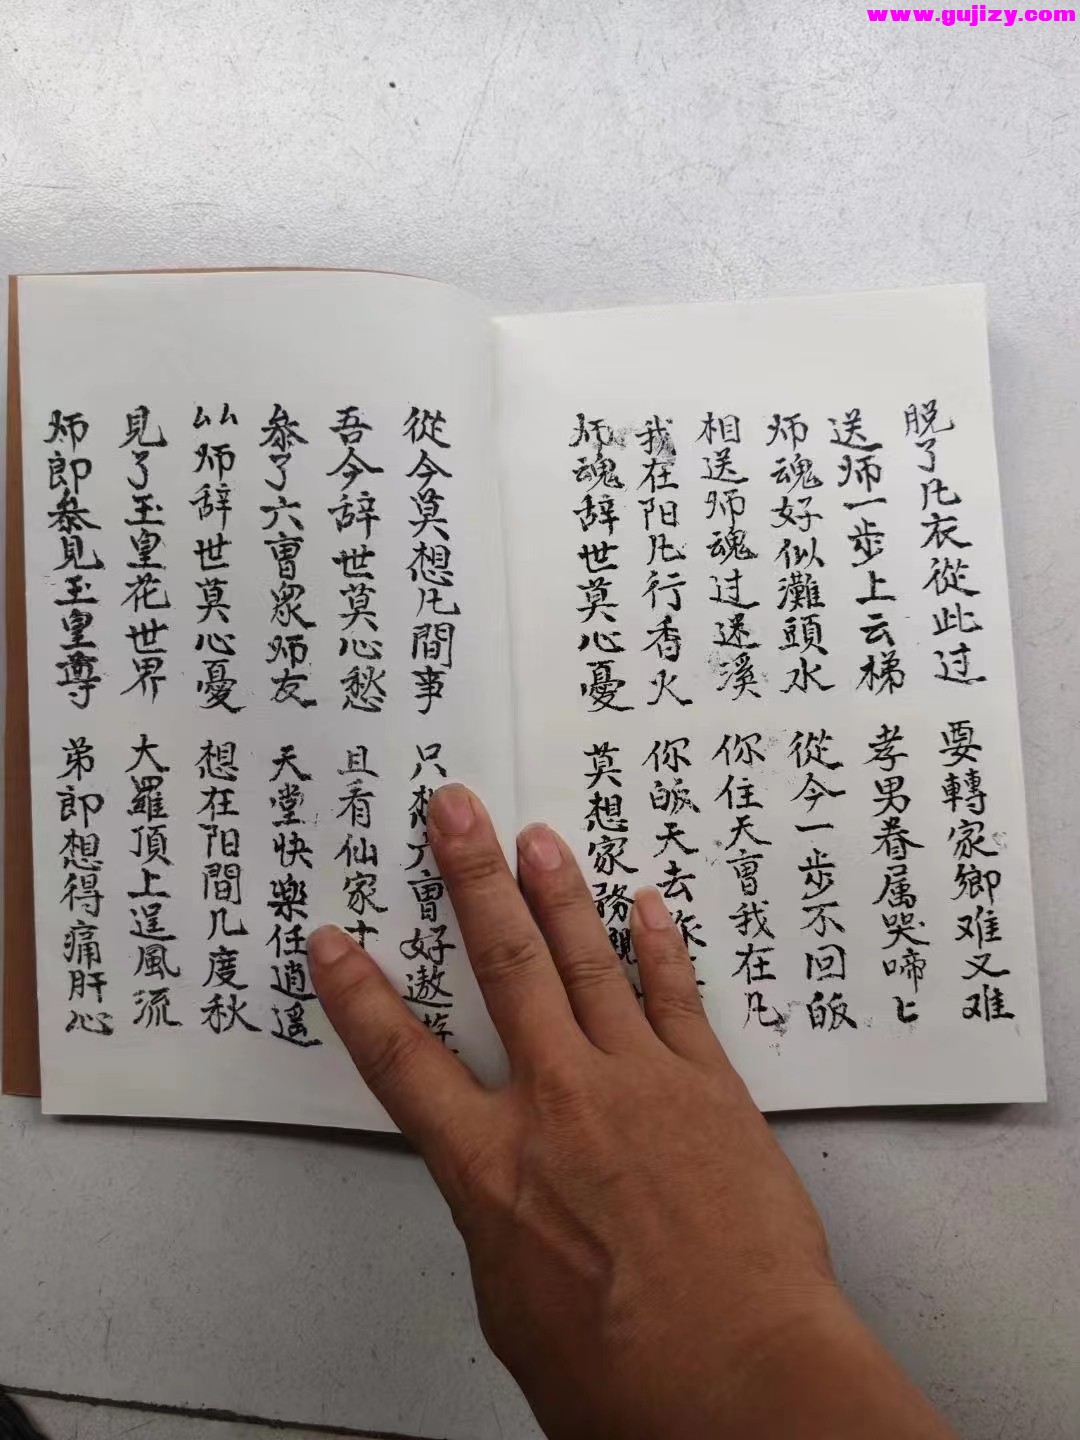 www.gujizy.com
脱了凡衣從此过 要轉家鄉难又难
送师一步上云梯 孝男眷属哭啼匕
师魂好似灘頭水 從今一步不回皈
相送师魂过迷溪 你住天曺我在凡
我在阳凡行香火 你皈天去
师魂辞世莫心憂 莫想家務
從今莫想凡間事 只想六曺好遨遊
吾今辞世莫心愁 且看仙家
叅了六曺衆师友 天堂快樂任逍遥
厸师辞世莫心憂 想在阳間几度秋
見了玉皇花世界 大羅頂上逞風流
师郎叅見玉皇尊 弟郎想得痛肝心